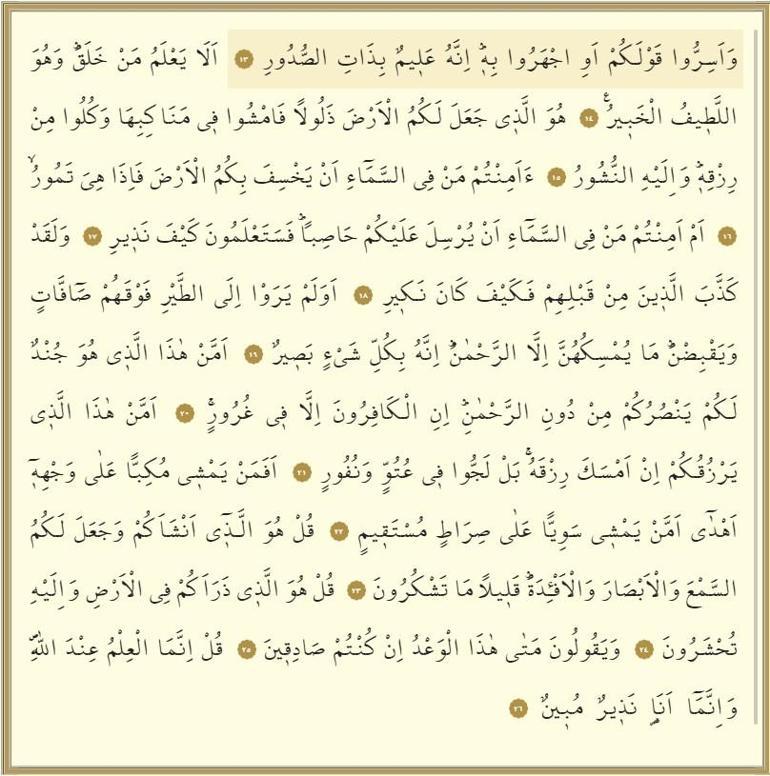 وَاَسِرُّوا قَوْلَكُمْ اَوِ اجْهَرُوا بِهٖۜ اِنَّهُ عَلٖيمٌ بِذَاتِ الصُّدُورِ ١٣ اَلَا يَعْلَمُ مَنْ خَلَقَۜ وَهُوَ
اللَّطٖيفُ الْخَبٖيرُ۟ ١٤ هُوَ الَّذٖي جَعَلَ لَكُمُ الْاَرْضَ ذَلُولاً فَامْشُوا فٖي مَنَاكِبِهَا وَكُلُوا مِنْ
رِزْقِهٖۜ وَاِلَيْهِ النُّشُورُ ١٥ ءَاَمِنْتُمْ مَنْ فِي السَّمَٓاءِ اَنْ يَخْسِفَ بِكُمُ الْاَرْضَ فَاِذَا هِيَ تَمُورُۙ
١٦ اَمْ اَمِنْتُمْ مَنْ فِي السَّمَٓاءِ اَنْ يُرْسِلَ عَلَيْكُمْ حَاصِباًۜ فَسَتَعْلَمُونَ كَيْفَ نَذٖيرِ ١٧ وَلَقَدْ
كَذَّبَ الَّذٖينَ مِنْ قَبْلِهِمْ فَكَيْفَ كَانَ نَكٖيرِ ١٨ اَوَلَمْ يَرَوْا اِلَى الطَّيْرِ فَوْقَهُمْ صَٓافَّاتٍ
وَيَقْبِضْنَۜ مَا يُمْسِكُهُنَّ اِلَّا الرَّحْمٰنُۜ اِنَّهُ بِكُلِّ شَيْءٍ بَصٖيرٌ ١٩ اَمَّنْ هٰذَا الَّذٖي هُوَ جُنْدٌ
لَكُمْ يَنْصُرُكُمْ مِنْ دُونِ الرَّحْمٰنِۜ اِنِ الْكَافِرُونَ اِلَّا فٖي غُرُورٍۚ ٢٠ اَمَّنْ هٰذَا الَّذٖي
يَرْزُقُكُمْ اِنْ اَمْسَكَ رِزْقَهُۚ بَلْ لَجُّوا فٖي عُتُوٍّ وَنُفُورٍ ٢١ اَفَمَنْ يَمْشٖي مُكِبًّا عَلٰى وَجْهِهٖٓ
اَهْدٰٓى اَمَّنْ يَمْشٖي سَوِيًّا عَلٰى صِرَاطٍ مُسْتَقٖيمٍ ٢٢ قُلْ هُوَ الَّذٖٓي اَنْشَاَكُمْ وَجَعَلَ لَكُمُ
السَّمْعَ وَالْاَبْصَارَ وَالْاَفْـِٔدَةَۜ قَلٖيلاً مَا تَشْكُرُونَ ٢٣ قُلْ هُوَ الَّذٖي ذَرَاَكُمْ فِي الْاَرْضِ وَاِلَيْهِ
تُحْشَرُونَ ٢٤ وَيَقُولُونَ مَتٰى هٰذَا الْوَعْدُ اِنْ كُنْتُمْ صَادِقٖينَ ٢٥ قُلْ اِنَّمَا الْعِلْمُ عِنْدَ اللّٰهِۖ
وَاِنَّمَٓا اَنَا۬ نَذٖيرٌ مُبٖينٌ ٢٦